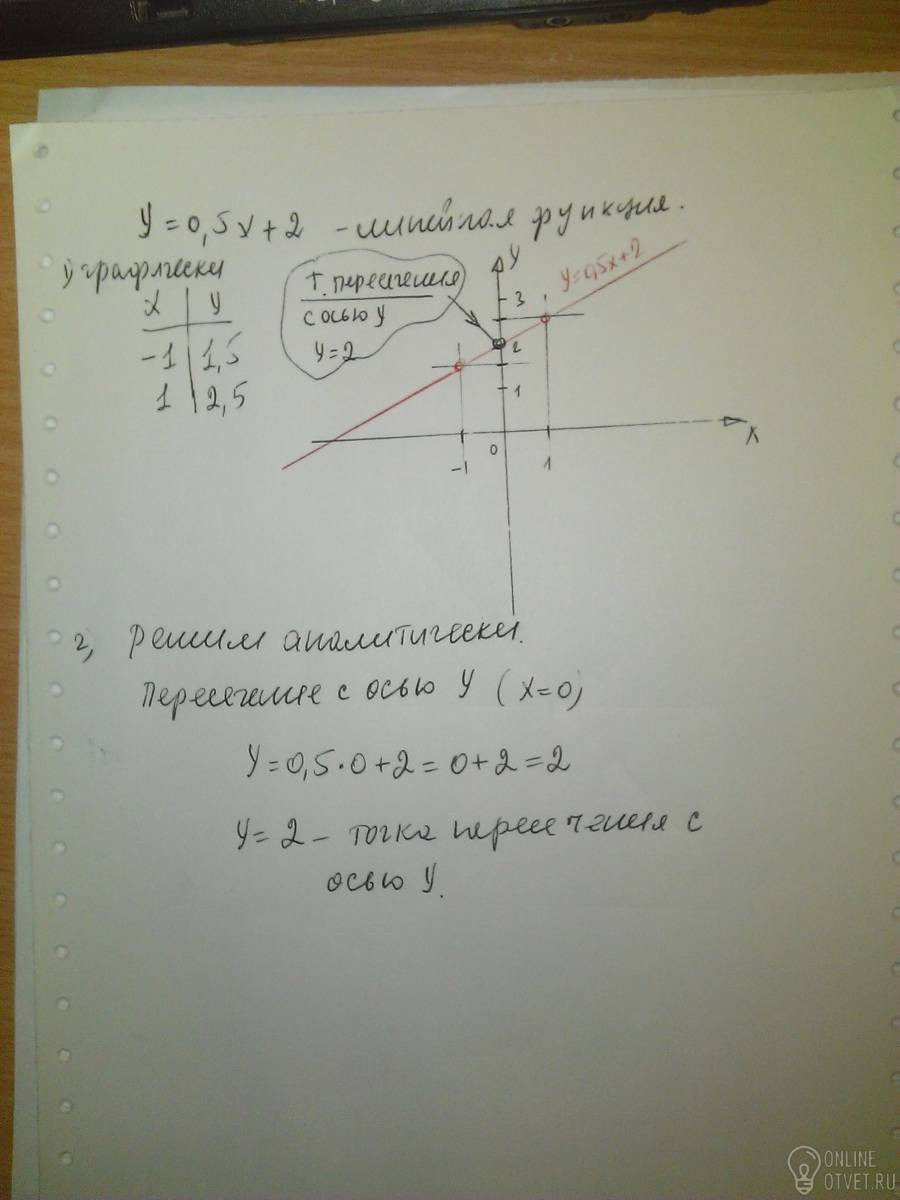 y = 0,5x + 2 - линейная функция.
1) графически
x y
-1 1,5
1 2,5
т. пересечения
с осью y
y = 2
y
3
2
1
0
-1
1
x
y=0,5x+2
2) Решим аналитически.
Пересечение с осью y (x=0)
y = 0,5·0+2 = 0+2 = 2
y = 2 - точка пересечения с
осью y.
ONLINE
OTVET.RU